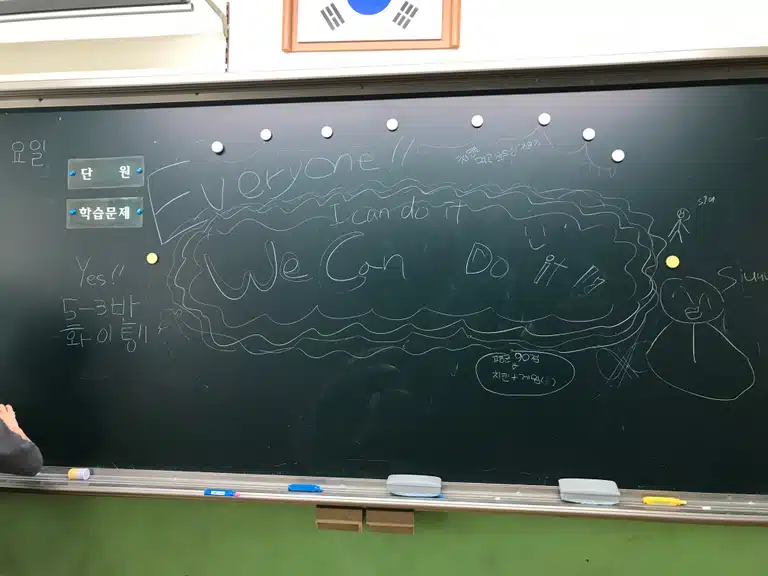 요일
Everyone!!
단 원
학습문제
I can do it
We Can Do it!!!
Yes!!
5-3반
화이팅!!
평균 90점
치킨+게임
Siuuu